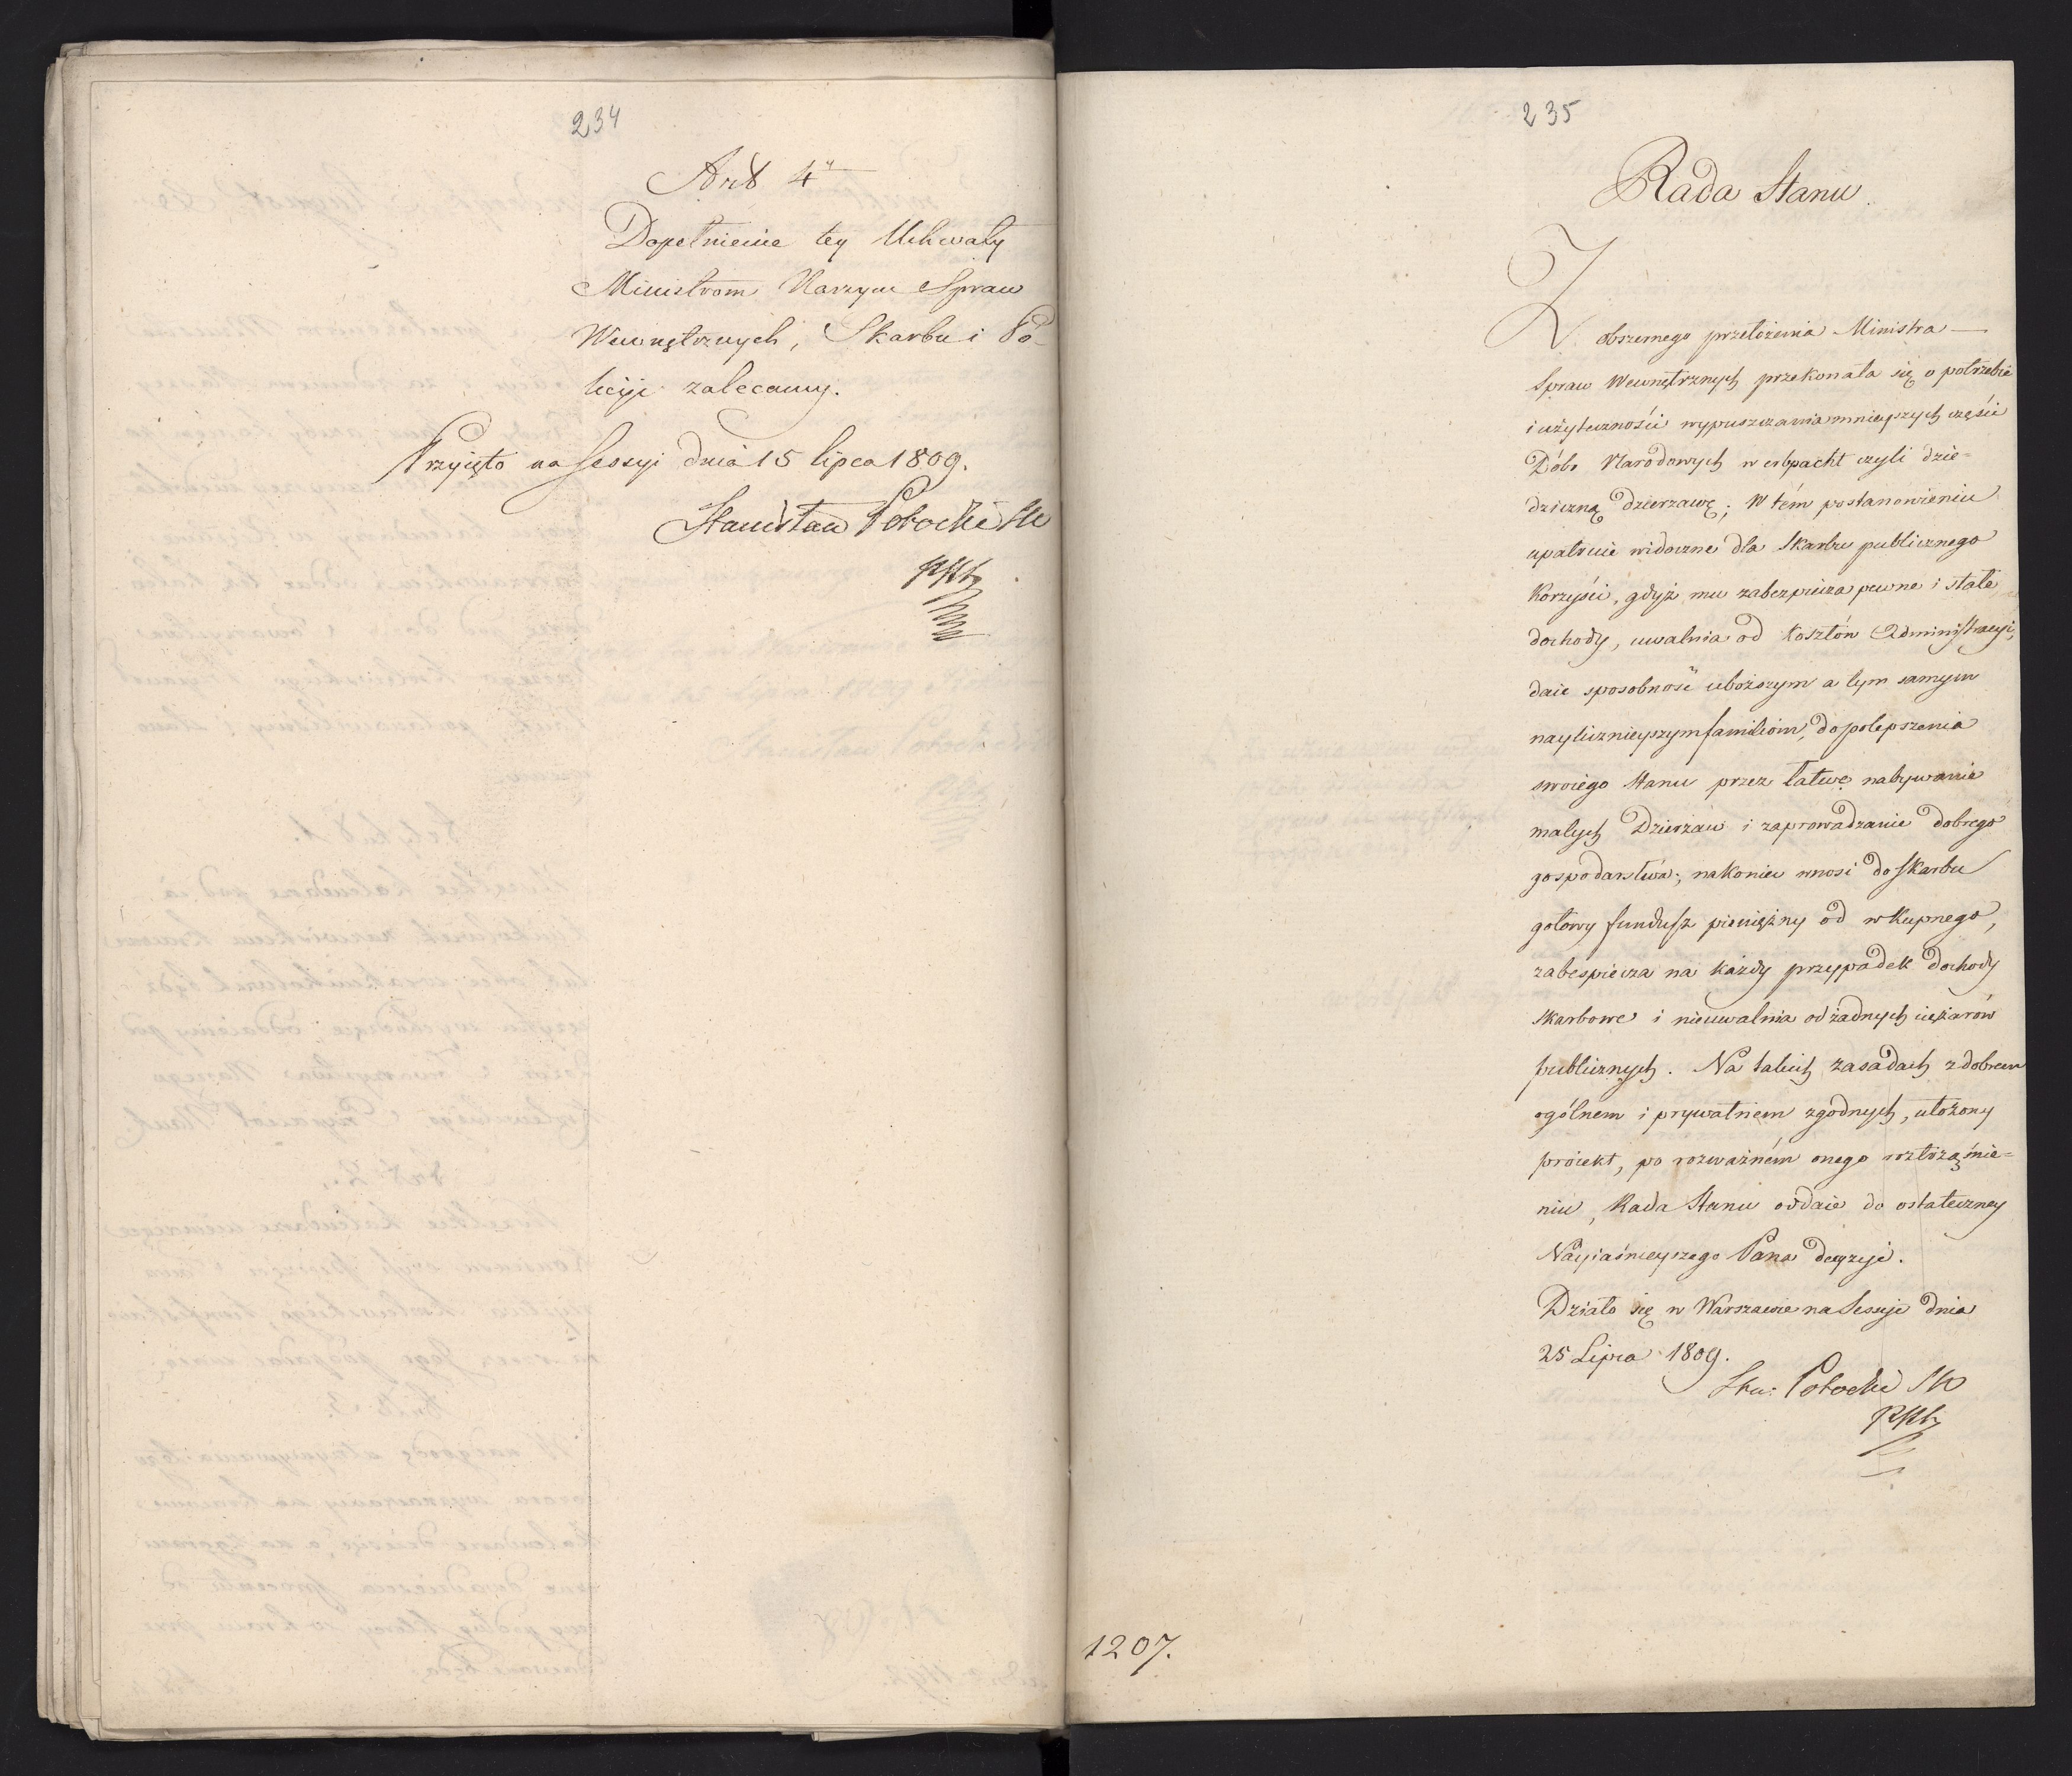 234
Art 4ty
Dopełnienie tey Uchwały
Ministrom Naszym Spraw
Wewnętrznych, Skarbu i Po-
licyi zalecamy.
Przyięto na Sessyi dnia 15 lipca 1809.
Stanisław Potocki
235
Rada Stanu
Z obszernego przełożenia Ministra
Spraw Wewnętrznych przekonała się o potrzebie
i użyteczności wypuszczania mnieyszych części
Dóbr Narodowych w erbpacht czyli dzie=
dziczną dzierzawę; W tém postanowieniu
upatruie widoczne dla Skarbu publicznego
Korzyści, gdyż mu zabezpiecza pewne i stałe
dochody, uwalnia od kosztów Administracyi,
daie sposobność uboższym a tym samym
naylicznieyszym familiom, do polepszenia
swoiego stanu przez łatwe nabywanie
małych Dzierżaw i zaprowadzanie dobrego
gospodarstwa; nakoniec wnosi do skarbu
gotowy fundusz pieniężny od wkupnego,
zabespiecza na każdy przypadek dochody
skarbowe i nieuwalnia od żadnych ciężarów
publicznych. Na takich zasadach z dobrem
ogólnem i prywatnem zgodnych, ułożony
proiekt, po rozważném onego roztrząśnie=
niu, Rada Stanu oddaie do ostateczney
Nayiaśnieyszego Pana decyzyi.
Działo się w Warszawie na Sessyi dnia
25 Lipca 1809.
Sta: Potocki
1207.